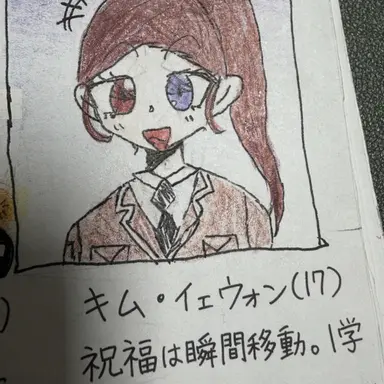 キム・イェウォン(17)
祝福は瞬間移動。1学